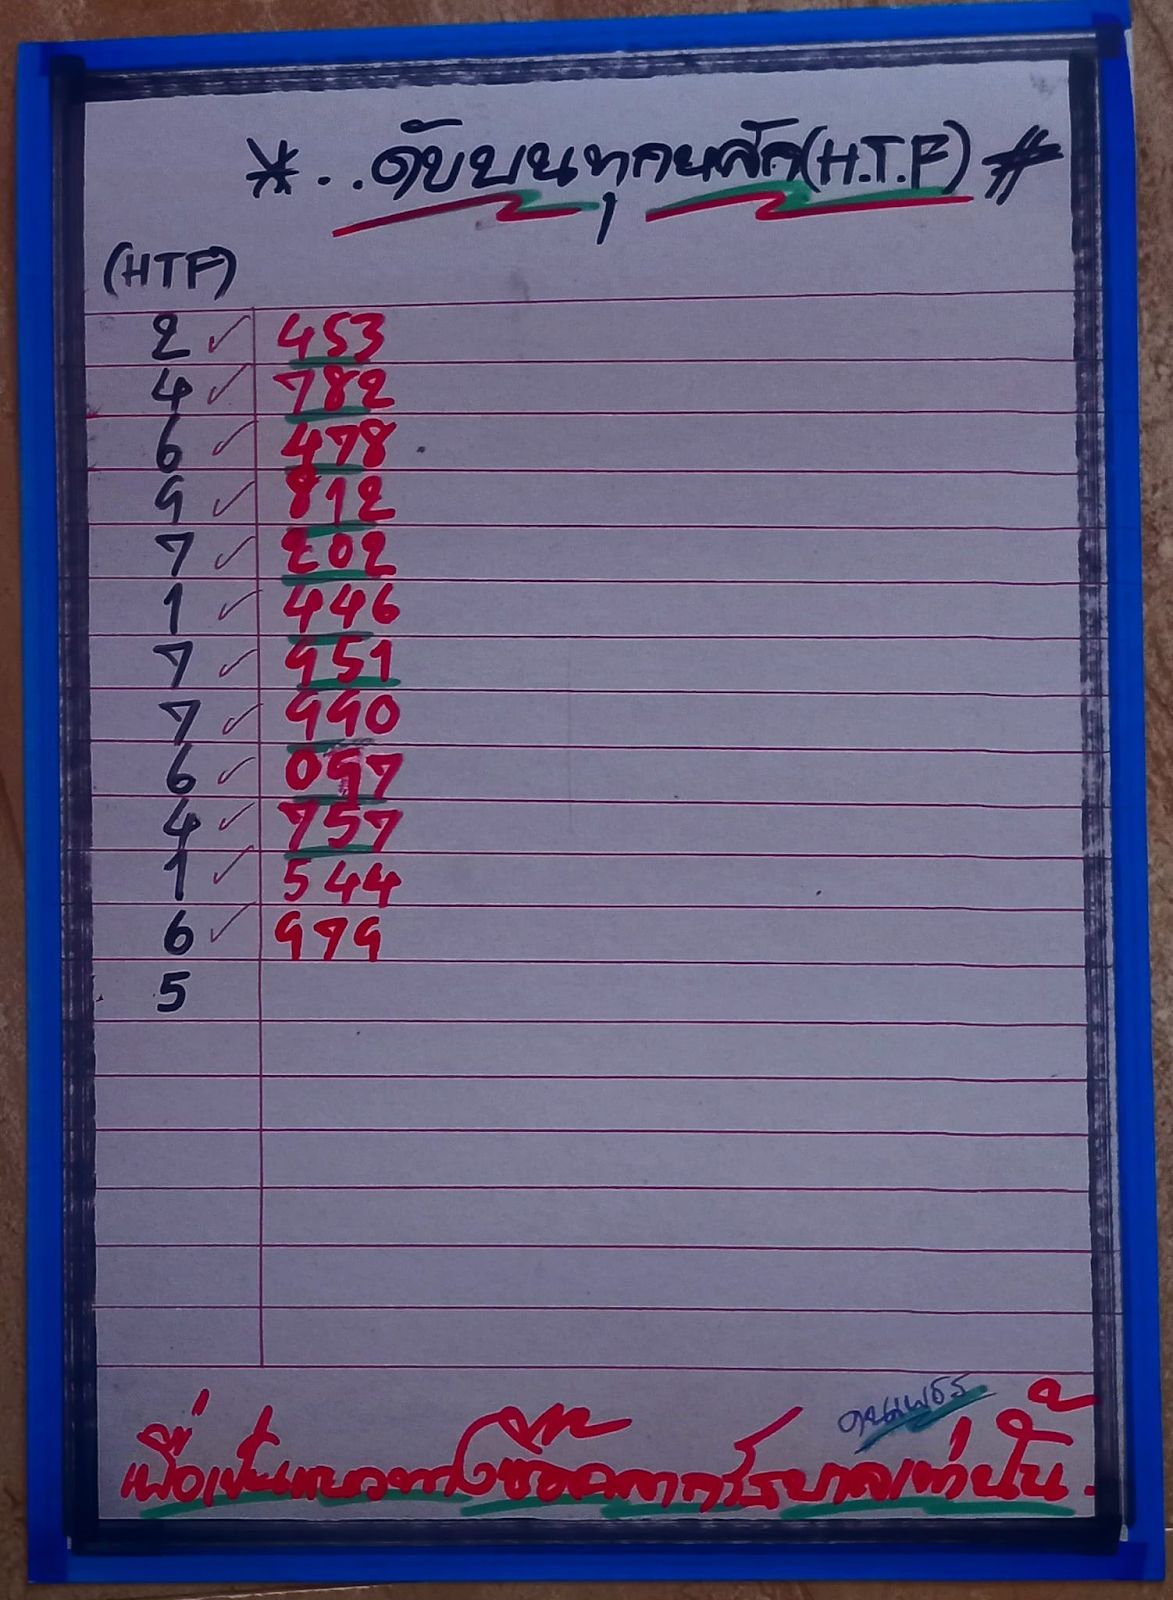 *..ดับบนทุกหลัก(H.T.F)#
(HTF)
2 ✓ 453
4 ✓ 782
6 ✓ 478
9 ✓ 812
7 ✓ 202
1 ✓ 446
7 ✓ 951
7 ✓ 990
6 ✓ 097
4 ✓ 757
1 ✓ 544
6 ✓ 979
5
เพื่อเป็นแนวทางซื้อสลากรัฐบาลเท่านั้น.